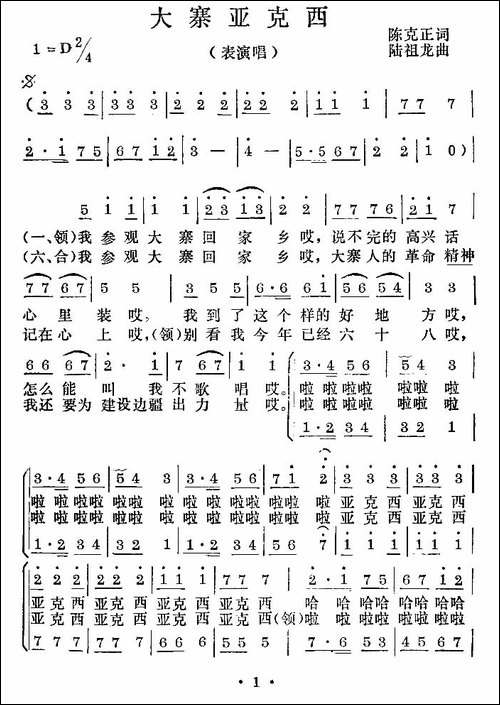 大寨亚克西
1=D 2/4
（表演唱）
陈克正词
陆祖龙曲
(3 3 3 | 3 3 3 | 2 2 2 | 2 2 2 | 1 1 1 | 7 7 7 |
2·1 7 5 | 6 7 1 2 | 3 － | 4 － | 5·5 6 7 | 2 2 | 1 0)|
5 1 1 | 1 1 | 2 3 1 3 | 2 2 | 7 7 7 6 | 2 1 7 |
(一、领)我参观大寨回家乡哎，说不完的高兴话
(六、合)我参观大寨回家乡哎，大寨人的革命精神
7 7 6 7 | 5 5 | 3 5 5 | 6·6 6 1 | 5 6 5 4 | 3 3 |
心里装哎。我到了这个样的好地方哎，
记在心上哎，(领)别看我今年已经六十八哎，
6 6 6 7 | 2·1 | 7 6 7 | 1 1 | 3·4 5 6 | 5 4 3 |
怎么能叫我不歌唱哎。啦啦啦啦啦啦啦
我还要为建设边疆出力量哎。啦啦啦啦啦啦啦
1·2 3 4 | 3 2 1 |
3·4 5 6 | 5 4 3 | 3·4 5 6 | 3·4 5 6 | 7 1 2 | 3 3 3 | 3 3 3 |
啦啦啦啦啦啦啦啦啦啦啦啦啦啦啦啦啦啦亚克西亚克西
啦啦啦啦啦啦啦啦啦啦啦啦啦啦啦啦啦啦亚克西亚克西
1·2 3 4 | 3 2 1 | 1·2 3 4 | 1·2 3 4 | 5 6 7 | 1 1 1 | 1 1 1 |
2 2 2 | 2 2 2 | 1 1 1 | 7 7 7 | 2·1 7 5 | 6 7 1 2 |
亚克西亚克西亚克西亚克西哈哈哈哈哈哈哈哈
亚克西亚克西亚克西亚克西(领)啦啦啦啦啦啦啦啦
7 7 7 | 7 7 7 | 6 6 6 | 5 5 5 | 7·6 5 3 | 4 5 6 7 |
· 1 ·